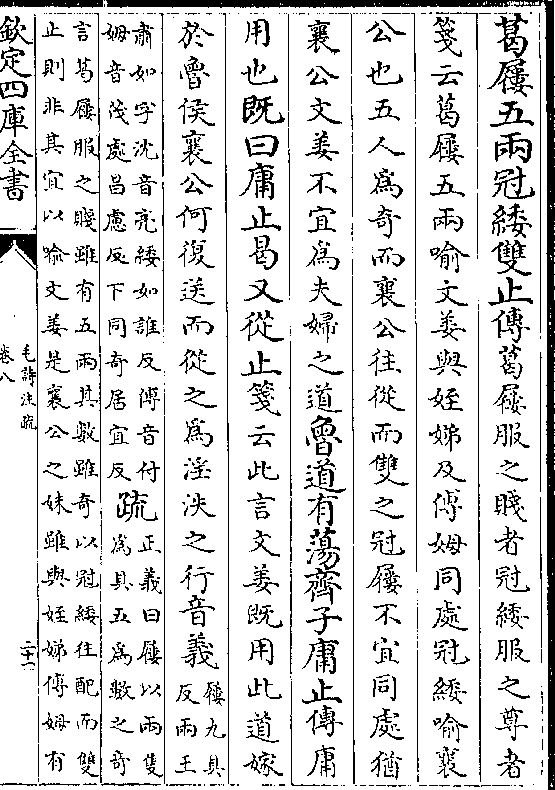 葛屨五兩冠緌雙止傳葛屨服之賤者冠緌服之尊者
箋云葛屨五兩喻文姜與姪娣及傅姆同處冠緌喻襄
公也五人為奇而襄公往從而雙之冠屨不宜同處猶
襄公文姜不宜為夫婦之道魯道有蕩齊子庸止傳庸
用也既曰庸止曷又從止箋云此言文姜既用此道嫁
於魯侯襄公何復送而從之為淫泆之行音義屨九具
反兩王
肅如字沈音亮緌如誰反傅音付
姆音茂處昌慮反下同奇居宜反
疏
正義曰屨以兩隻
為具五為數之奇
言葛屨服之賤雖有五兩其數雖奇以冠緌往配而雙
止則非其宜以喻文姜是襄公之妹雖與姪娣傅姆有
欽定四庫全書
毛詩注疏
卷八
二十二